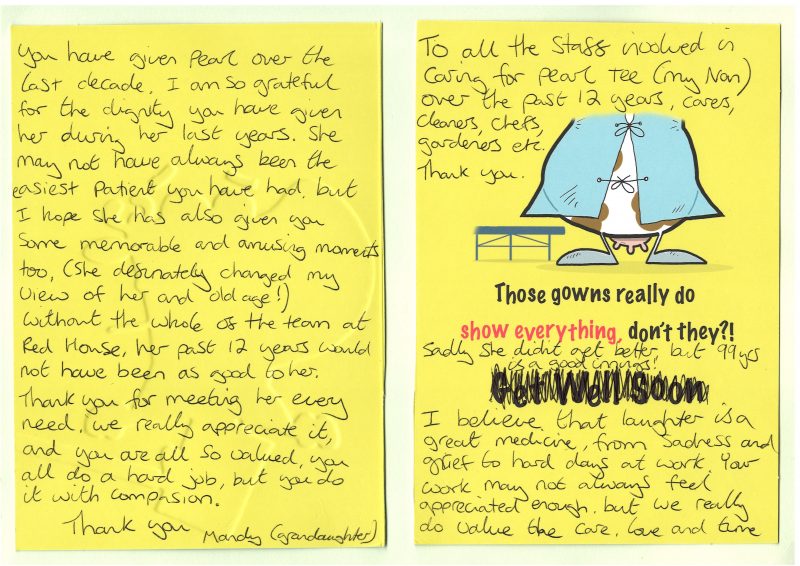 To all the Staff involved in
Caring for Pearl Tee (my Nan)
over the past 12 years, cares,
cleaners, chefs,
gardeners etc.
Thank you.
Those gowns really do
show everything, don't they?!
Sadly she didn't get better, but 99yrs
is a good innings!
Get Well Soon
I believe that laughter is a
great medicine, from Sadness and
grief to hard days at work. Your
work may not always feel
appreciated enough, but we really
do value the care, love and time
you have given Pearl over the
last decade. I am so grateful
for the dignity you have given
her during her last years. She
may not have always been the
easiest patient you have had, but
I hope she has also given you
Some memorable and amusing moments
too, (She definately changed my
view of her and old age!)
Without the whole of the team at
Red House, her past 12 years would
not have been as good to her.
Thank you for meeting her every
need, we really appreciate it,
and you are all so valued, you
all do a hard job, but you do
it with compasion.
Thank you Mandy (Grandaughter)